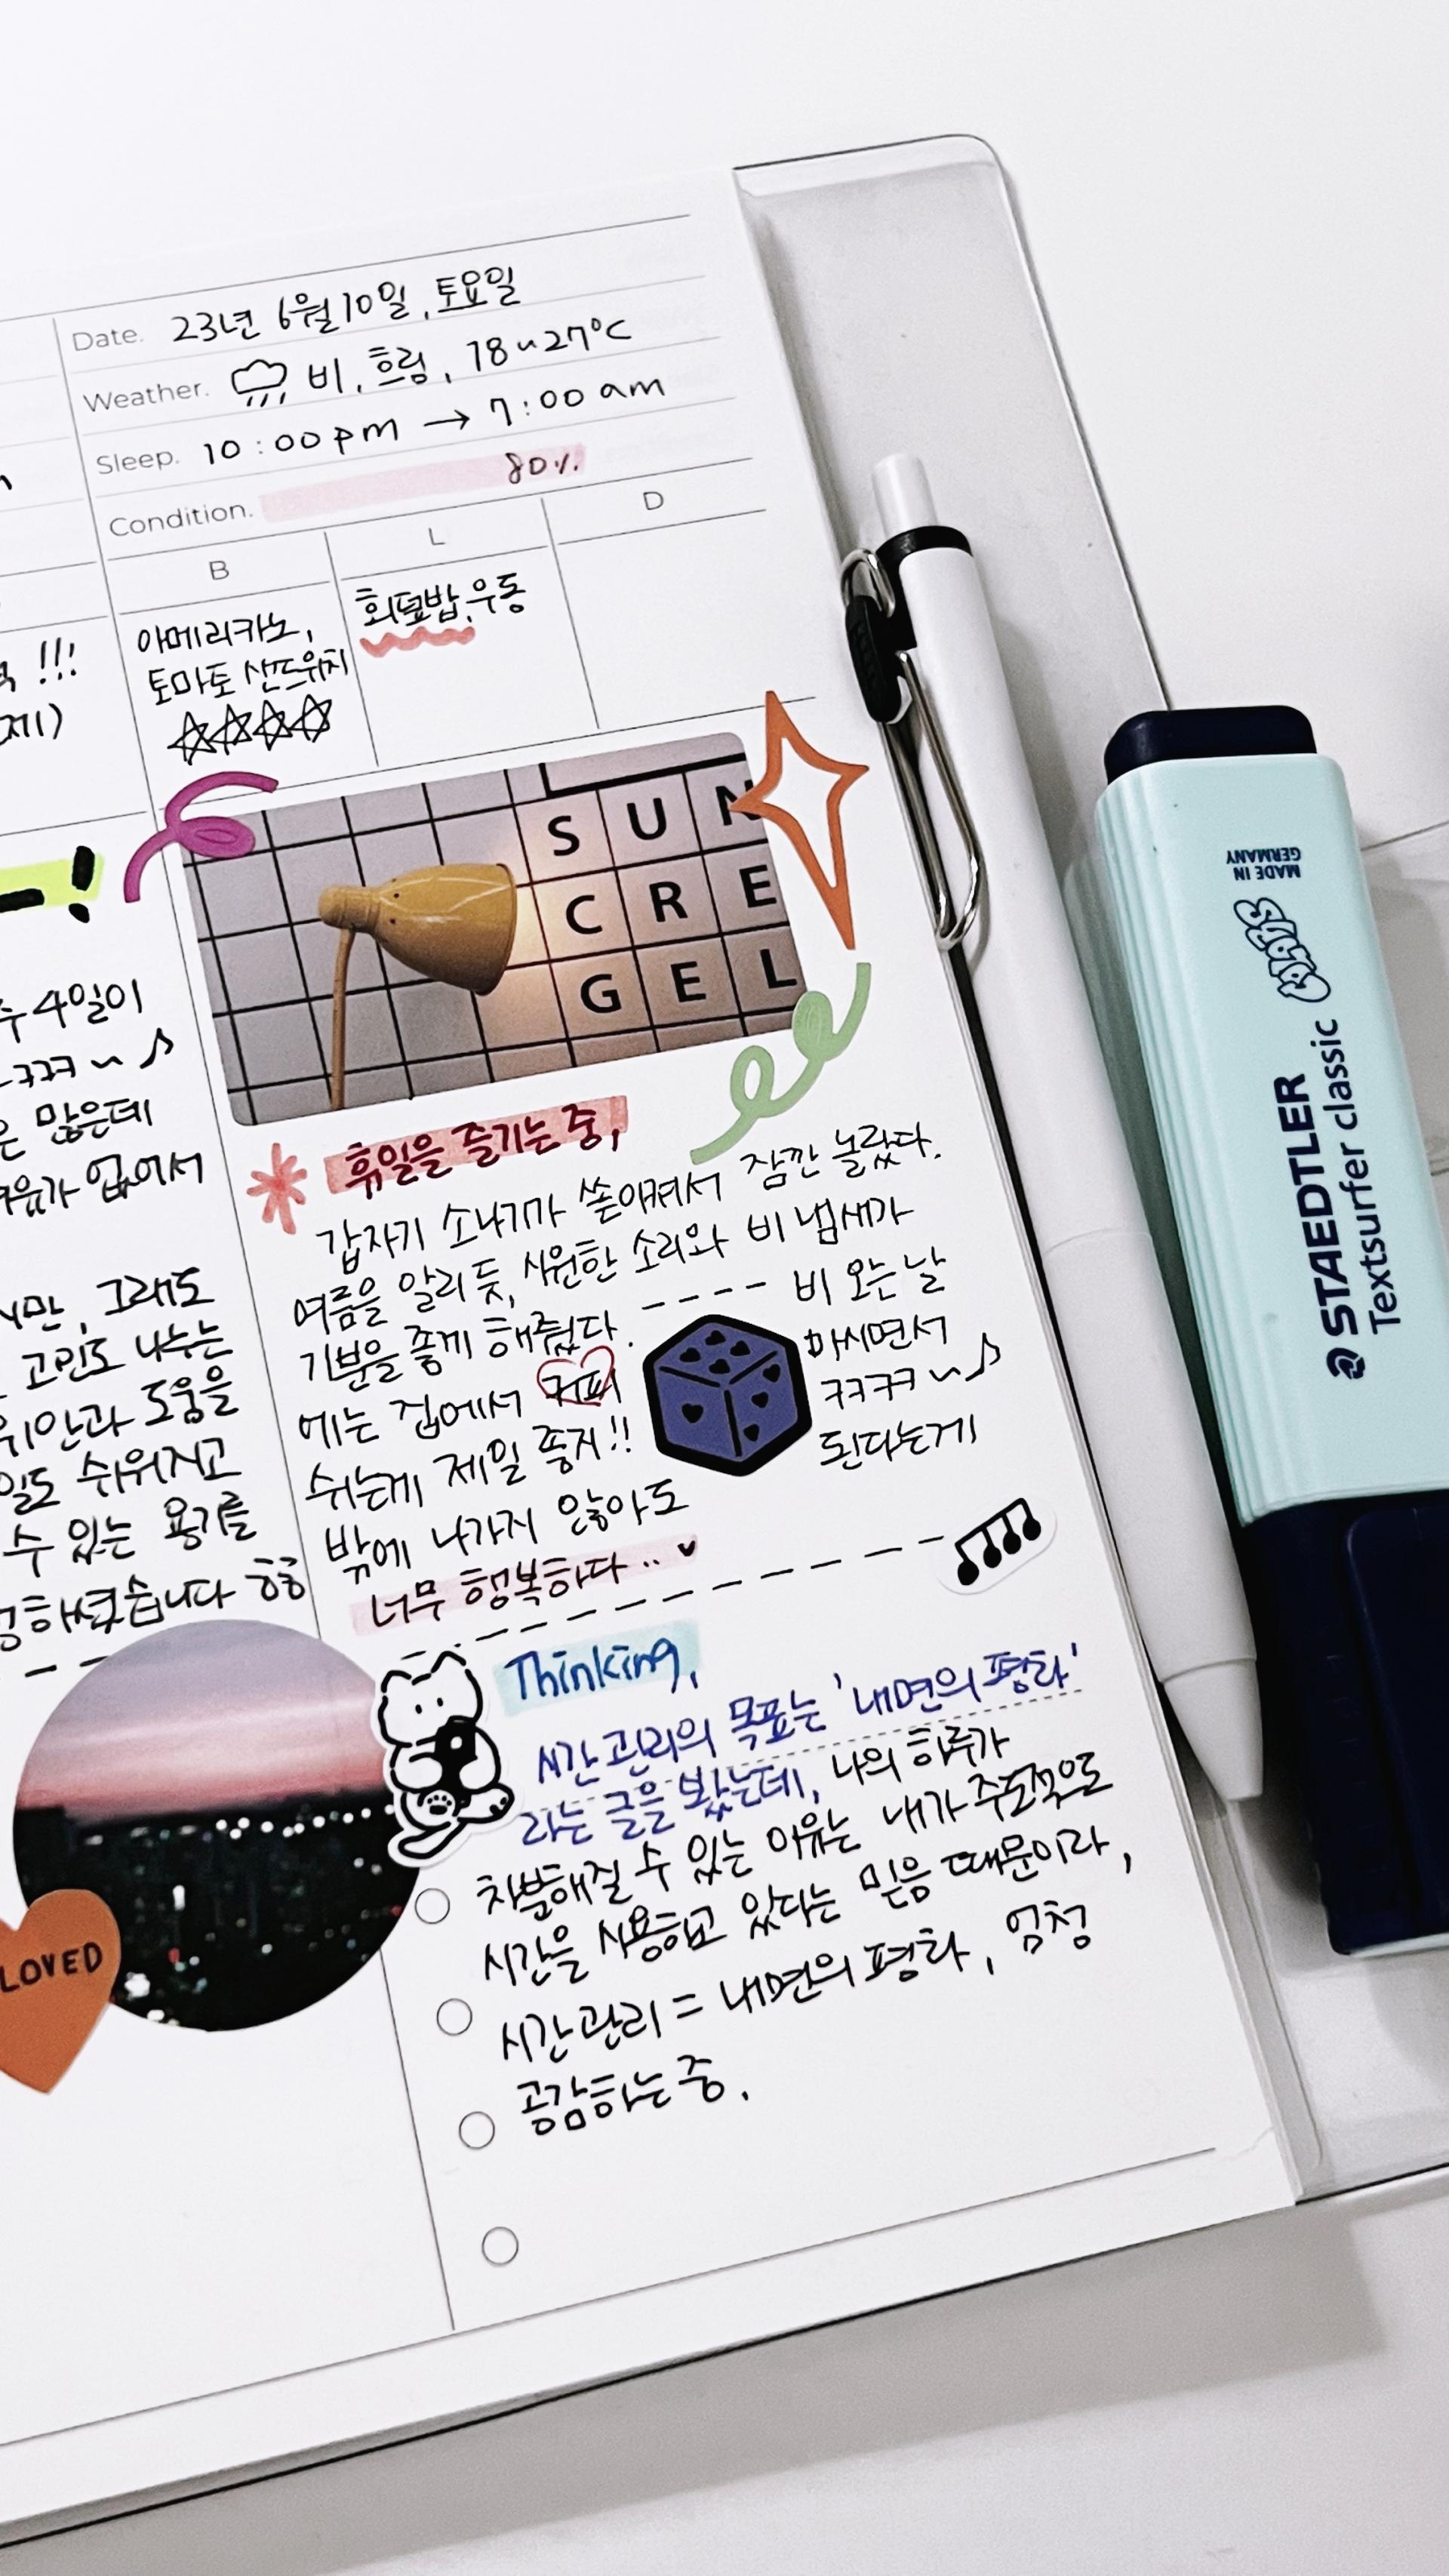 Date. 23년 6월 10일, 토요일
Weather. 비, 흐림, 18~27°C
Sleep. 10:00pm → 7:00 am
Condition. 80%
B
L
D
아메리카노,
토마토 샌드위치
회덮밥, 우동
!!!
제)
!
S U N
C R E
G E L
4일이
ㅋㅋㅋ~♪
많은데
없어서
그래도
고민도 나누는
위안과 도움을
쉬워지고
수 있는 용기를
ㅎㅎ
LOVED
휴일을 즐기는 중,
갑자기 소나기가 쏟아져서 잠깐 놀랐다.
여름을 알리듯, 시원한 소리와 비 냄새가
기분을 좋게 해줬다. ---- 비 오는 날
에는 집에서 커피 마시면서
쉬는게 제일 좋지!! ㅋㅋㅋㅋ~♪
밖에 나가지 않아도 된다는게
너무 행복하다..♥
Thinking,
시간 관리의 목표는 '내면의 평화'
라는 글을 봤는데, 나의 하루가
차분해질 수 있는 이유는 내가 주도적으로
시간을 사용하고 있다는 믿음 때문이라,
시간 관리 = 내면의 평화, 엄청
공감하는 중.
MADE IN
GERMANY
STAEDTLER
Textsurfer classic